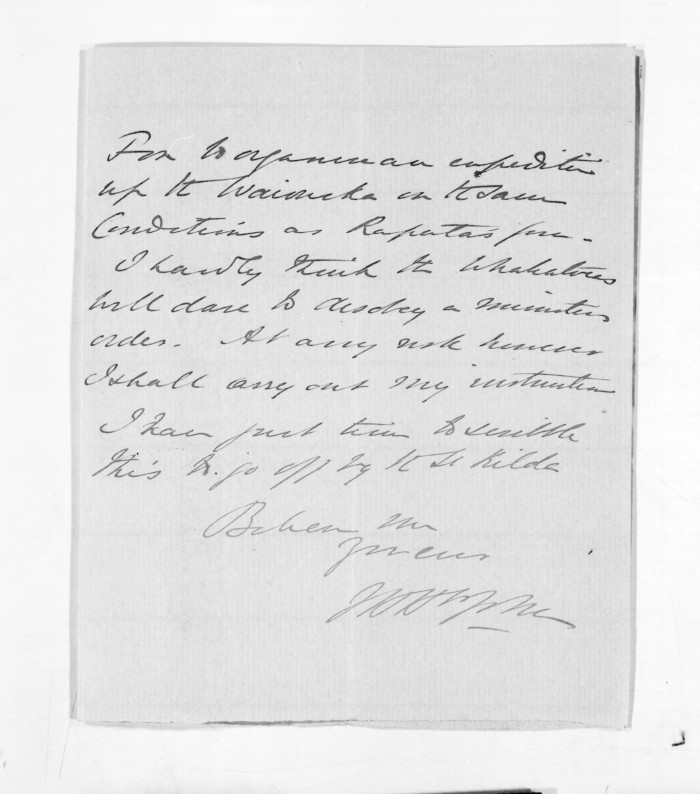 For to organize an expedition
up the Waioeka on the same
Conditions as Ropata's force.
I hardly think the Whakatohea
will dare to disobey a ministers
order. At any risk however
I shall carry out my instruction
I have just time to scribble
this to go off by the St Kilda
Believe me
Yours